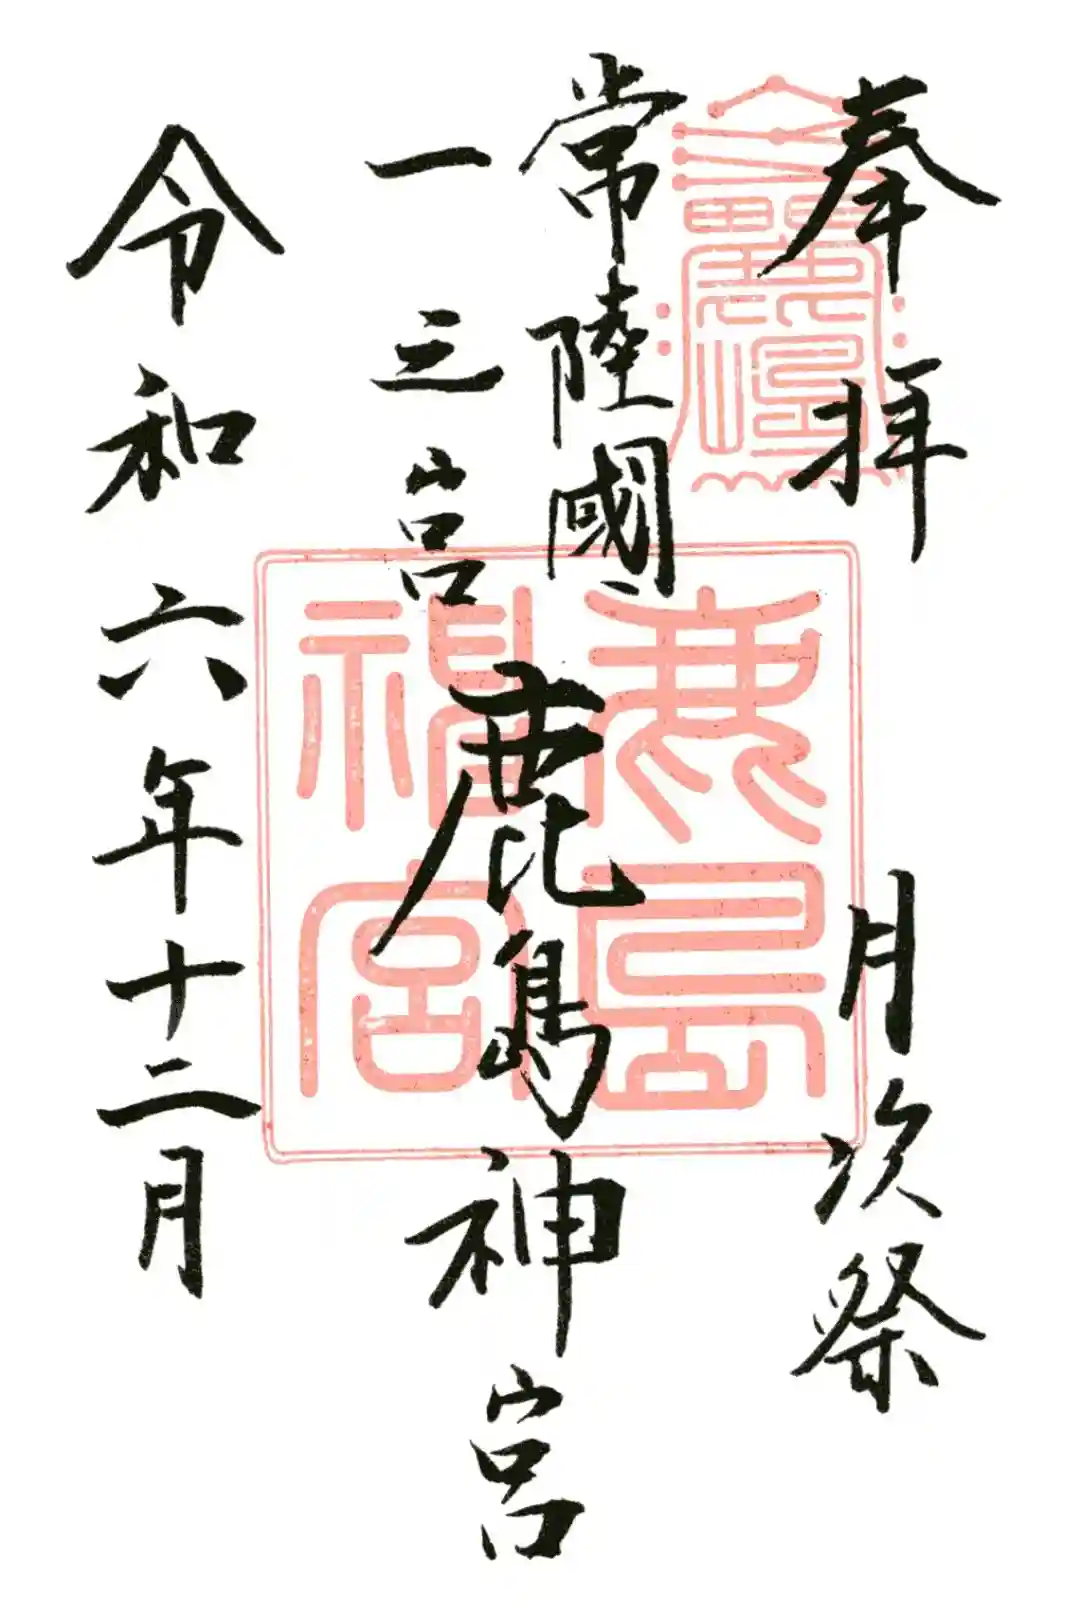 奉拝　月次祭
常陸國
一之宮
鹿島神宮
令和六年十二月
鹿島
神宮